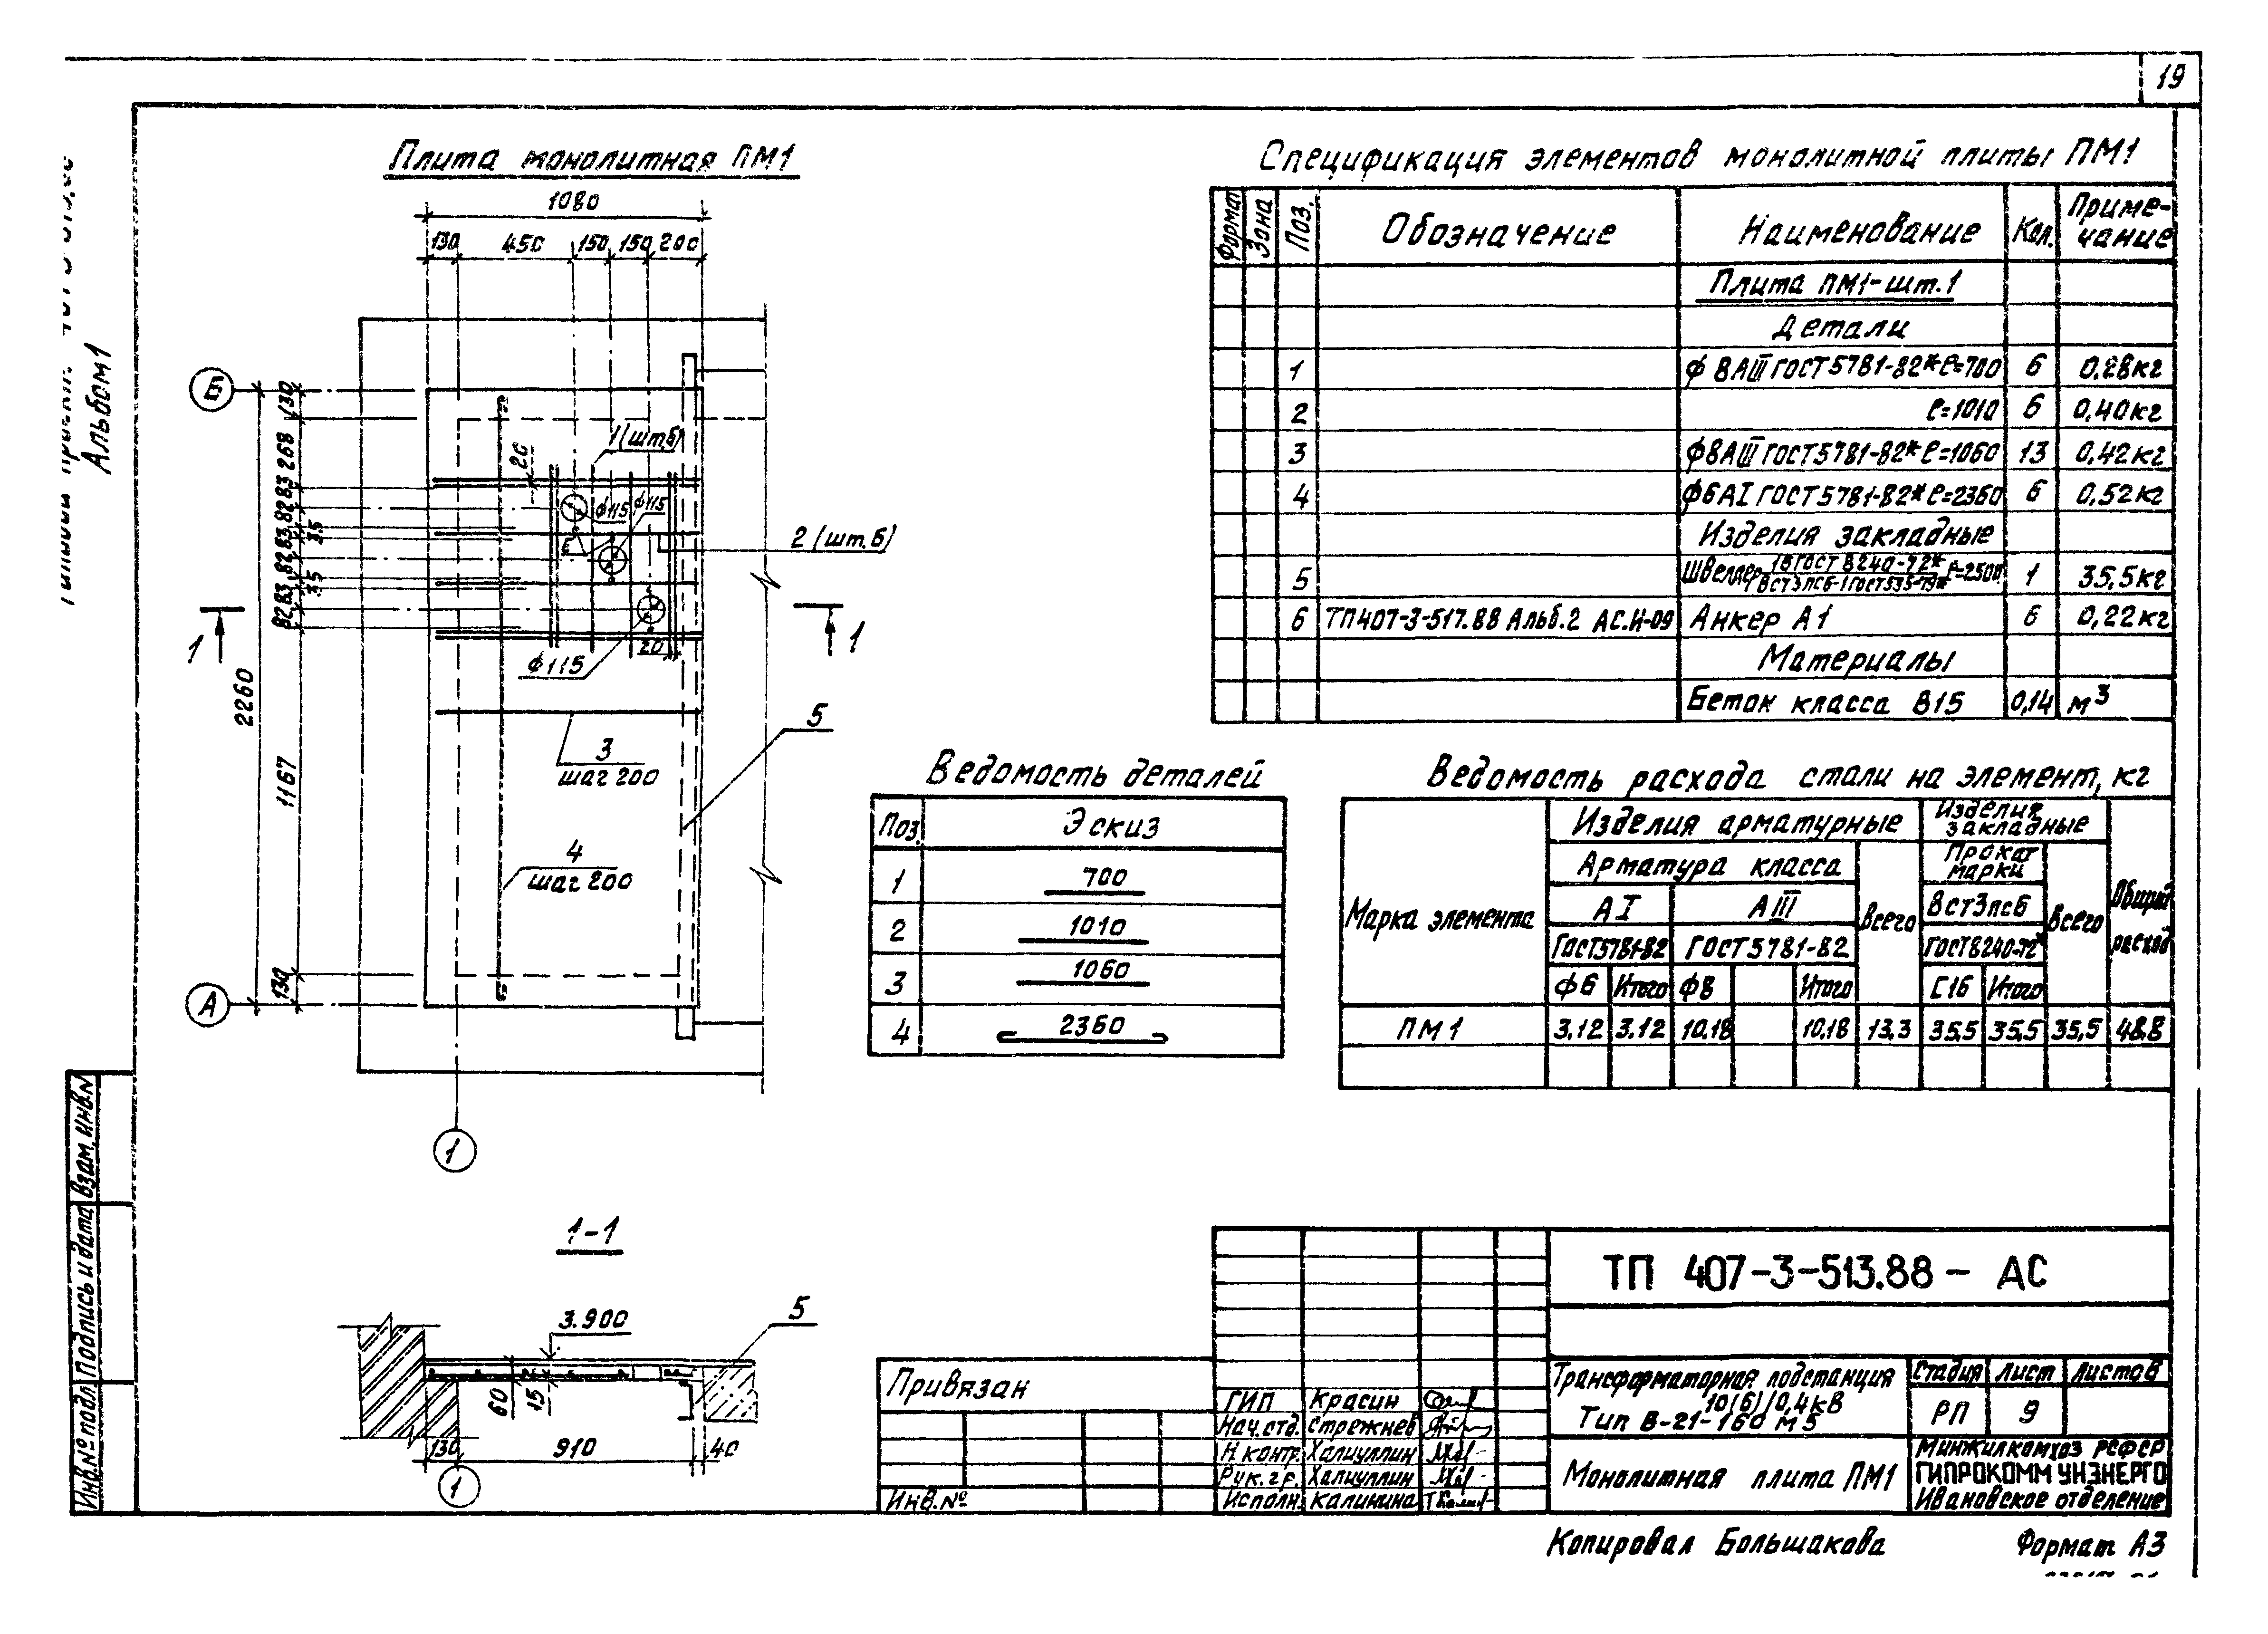 19
Альбом 1
Плита монолитная ПМ1
1080
130 450 150 150 200
Б
130
268
83
82
83
35
82
35
83
82
1167
130
2260
А
20
1 (шт.6)
ф115 ф115
6
2 (шт. 6)
20
ф115
1 1
5
3
шаг 200
4
шаг 200
1
1-1
3.900
5
60
15
130 910 40
1
Спецификация элементов монолитной плиты ПМ1
Формат Зона Поз. Обозначение Наименование Кол. Приме-
чание
Плита ПМ1-шт.1
Детали
1 ф 8АIII ГОСТ 5781-82* ℓ=700 6 0,28кг
2 ℓ=1010 6 0,40кг
3 ф8АIII ГОСТ 5781-82* ℓ=1060 13 0,42кг
4 ф6АI ГОСТ 5781-82* ℓ=2360 6 0,52кг
Изделия закладные
5 Швеллер 16 ГОСТ 8240-72* ℓ=2500 1 35,5кг
ВСт3пс6-1 ГОСТ 535-79*
6 ТП407-3-517.88 Альб.2 АС.И-09 Анкер А1 6 0,22кг
Материалы
Бетон класса В15 0,14 м³
Ведомость деталей
Поз. Эскиз
1 700
2 1010
3 1060
4 2360
Ведомость расхода стали на элемент, кг
Марка элемента
Изделия арматурные
Изделия
закладные
Арматура класса
Прокат
марки
АI АIII Всего ВСт3пс6 Всего Общий
расход
ГОСТ5781-82 ГОСТ 5781-82 ГОСТ8240-72*
ф6 Итого ф8 Итого С16 Итого
ПМ1 3.12 3.12 10.18 10.18 13.3 35.5 35,5 35,5 48.8
Взам. инв.№
Подпись и дата
Инв.№ подл.
Привязан
Инв.№
ТП 407-3-513.88 - АС
ГИП Красин
Нач.отд. Стрежнев
Н. контр. Халиуллин
Рук. гр. Халиуллин
Исполн. Калинина
Трансформаторная подстанция
10(6)/0,4кВ
Тип В-21-160 М5
Стадия Лист Листов
РП 9
Монолитная плита ПМ1
Минжилкомхоз РСФСР
ГИПРОКОММУНЭНЕРГО
Ивановское отделение
Копировал Большакова Формат А3